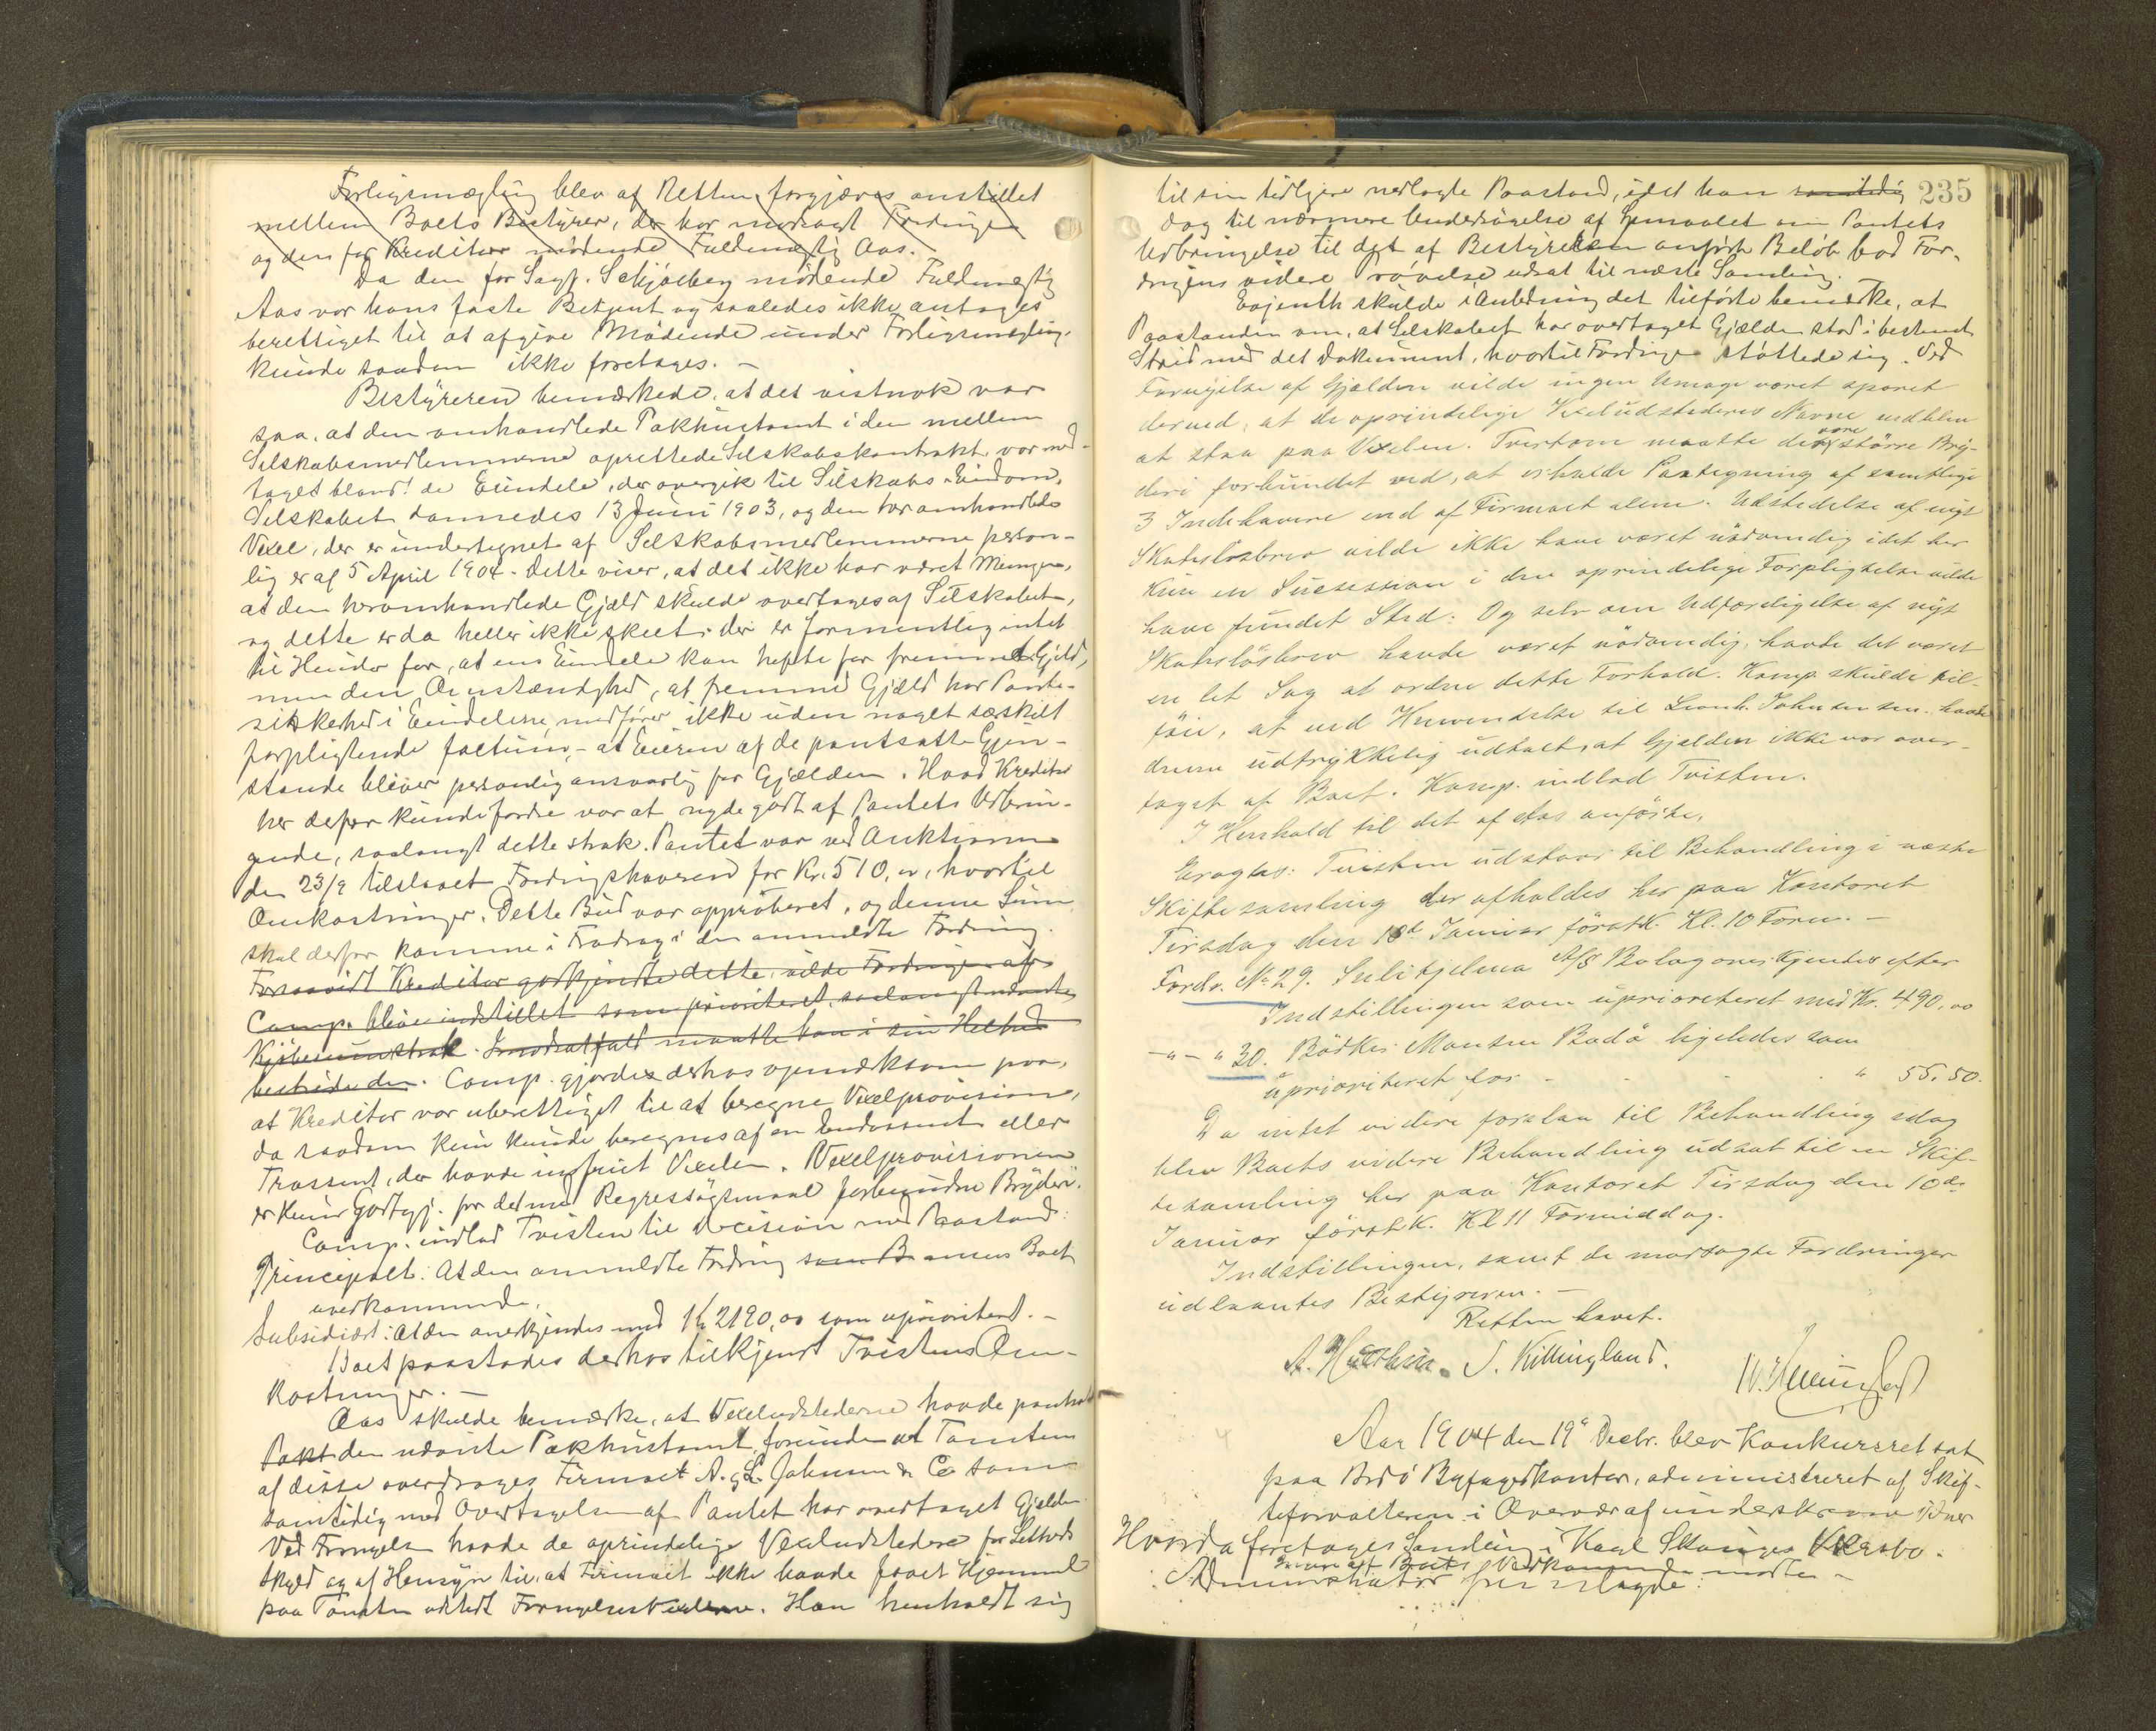 Forligsmægling blev af Retten forgjæves anstillet
mellem Boets Bestyrer, der har modsagt Fordringen
og den for Kreditor mødende Fuldmægtig Aas.
Da den for Sagf. Schjølberg mødende Fuldmægtig
Aas var hans faste Betjent og saaledes ikke antages
berettiget til at afgive Mødende under Forligsmægling,
kunde saadan ikke foretages. –
Bestyreren bemærkede, at det vistnok var
saa, at den omhandlede Pakhustomt i den mellem
Selskabsmedlemmerne oprettede Selskabskontrakt var med-
taget blandt de Eiendele, der overgik til Selskabs-Eiendom.
Selskabet dannedes 13 Juni 1903, og den her omhandlede
Vexel, der er undertegnet af Selskabsmedlemmerne person-
lig er af 5 April 1904. Dette viser, at det ikke har været Meningen,
at den heromhandlede Gjæld skulde overtages af Selskabet,
og dette er da heller ikke skeet; der er formentlig intet
til Hinder for, at ens Eiendele kan hefte for fremmed Gjæld,
men den Omstændighed, at fremmed Gjæld har Pante-
sikkerhed i Eiendelene, medfører ikke uden noget særskilt
forpligtende factum, – at Eieren af de pantsatte Gjen-
stande bliver personlig ansvarlig for Gjælden. Hvad Kreditor
her derfor kunde fordre var at nyde godt af Pantets Udbrin-
gende, saalangt dette strak. Pantet var ved Auktionen
den 23/9 tilslaaet Fordringshaveren for Kr. 510,00, hvortil
Omkostninger. Dette Bud var approberet, og denne Sum
skal derfor komme i Fradrag i den anmeldte Fordring.
Forsaavidt Kreditor godkjendte dette, vilde Fordringen af
Comp. blive indstillet som prioriteret, saalangt nævnte
Kjøbesum strak. I modsat fald maatte han i sin Helhed
bestride den. Comp. gjorde derhos opmærksom paa,
at Kreditor var uberettiget til at beregne Vexelprovision,
da saadan kun kunde beregnes af en Endossent eller
Trassent, der havde indfriet Vexelen. Vexelprovisionen
er kun Godtgj. for det med Regressøgsmaal forbundne Bryderi.
Comp. indlod Tvisten til Decision med Paastand:
Principalt: At den anmeldte Fordring som B ansees Boet
uvedkommende.
Subsidiært: At den anerkjendes med Kr. 2190,00 som uprioriteret. –
Boet paastodes derhos tilkjendt Tvistens Om-
kostninger. –
Aas skulde bemærke, at Vexeludstederne havde pantsat
Pakt den udviste Pakhustomt, forinden at Tomten
af disse overdroges Firmaet A. & L. Johnsen & Co som
samtidig med Overtagelsen af Pantet har overtaget Gjælden.
Ved Fornyelsen havde de oprindelige Vexeludstedere for Letheds
skyld og af Hensyn til, at Firmaet ikke havde faaet Hjemmel
paa Tomten udstedt Fornyelsesvexlerne. Han henholdt sig
235
til sin tidligere nedlagte Paastand, idet han samtidig
dog til nærmere Undersøgelse af Spørsmaalet om Pantets
Udbringelse til det af Bestyrelsen anførte Beløb bad For-
dringens videre Prøvelse udsat til næste Samling. –
Eojenth skulde i Anledning det tilførte bemærke, at
Paastanden om, at Selskabet har overtaget Gjælden stod i bestemt
Strid med det Dokument, hvortil Fordringen støttede sig. Ved
Fornyelse af Gjælden vilde ingen Umage været sparet
derved, at de oprindelige Vexeludstederes Navne vedblev
at staa paa Vexelen. Tvertom maatte det være større Bry-
deri forbundet ved, at erholde Paategning af samtlige
3 Indehavere end af Firmaet alene. Udstedelse af nyt
Skadesløsbrev vilde ikke have været nødvendig idet her
kun en Sucsession i den oprindelige Forpligtelse vilde
have fundet Sted. Og selv om Udfærdigelse af nyt
Skadesløsbrev havde været nødvendig, havde det været
en let Sag at ordne dette Forhold. Komp. skulde til-
føie, at ved Henvendelse til Leonh. Johnsen sen. havde
denne udtrykkelig udtalt, at Gjælden ikke var over-
taget af Boet. Komp. indlod Tvisten.
I Henhold til det af Aas anførte,
Eragtes: Tvisten udstaar til Behandling i næste
Skiftesamling der afholdes her paa Kontoret
Tirsdag den 10de Januar førstk. Kl. 10 Form. –
Fordr. No 29. Sulitjelma A/S Bolag anerkjendes efter
Indstillingen som uprioriteret med Kr. 490,00
– " – " 30. Bødker Monsen Bodø ligeledes som
uprioriteret for - - - " 55,50.
Da intet videre forelaa til Behandling idag
blev Boets videre Behandling udsat til en Skif-
tesamling her paa Kontoret Tirsdag den 10de
Januar førstk. Kl 11 Formiddag.
Indstillingen, samt de modsagte Fordringer
udlaantes Bestyreren. –
Retten hævet.
J. Killingland.
Aar 1904 den 19de Decbr. blev Konkursret sat
paa Bodø Byfogedkontor, administreret af Skif-
teforvalteren i Overvær af underskrevne Vidner
Hvorda foretages Samling i Karl Skanges Vexelbo.
Ingen af Boets Vedkommende mødte –
Administrator fremlagde: